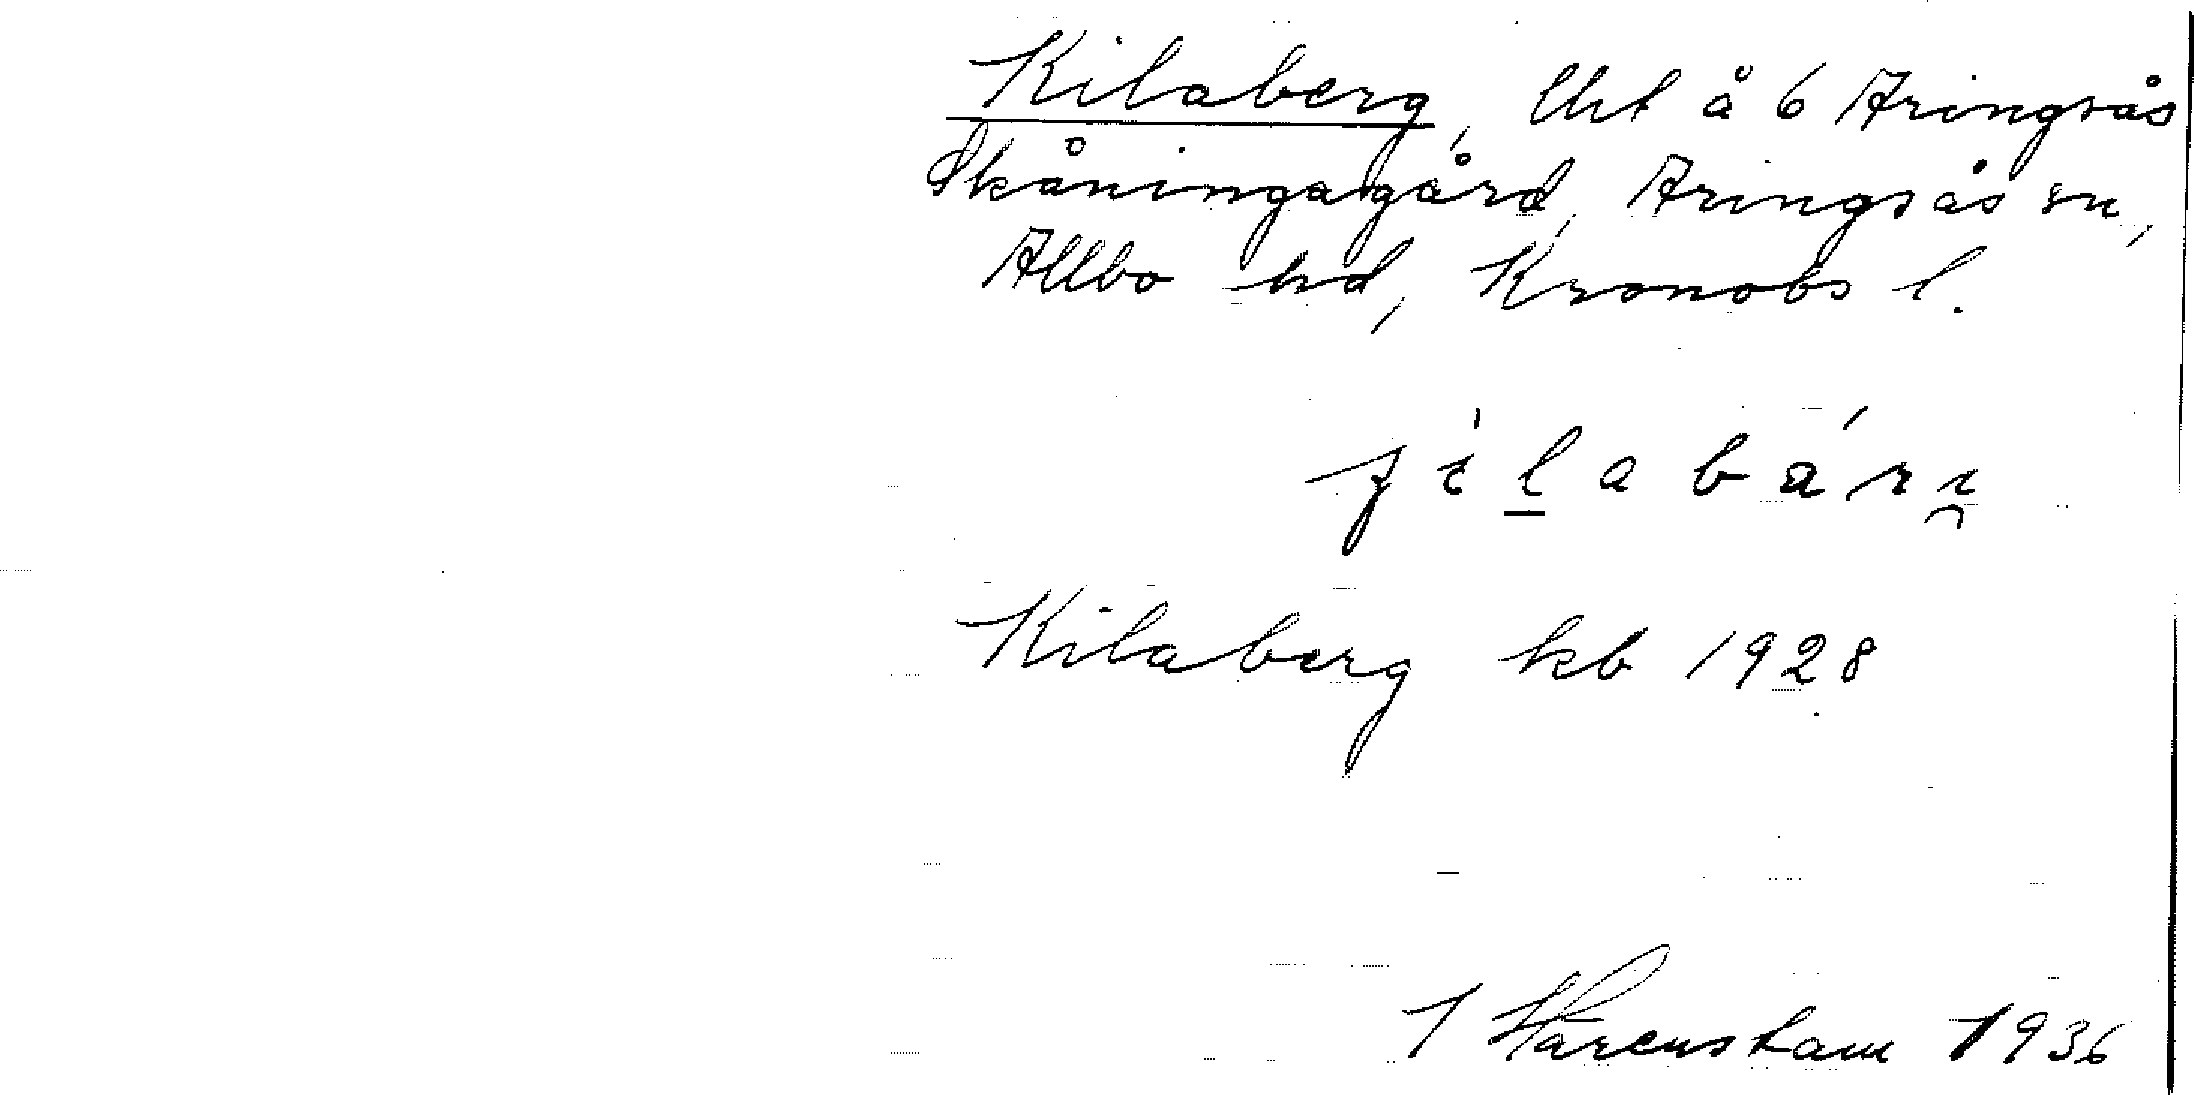 Kilaberg, lht å 6 Aringsås
Skåningagård, Aringsås sn,
Allbo hd, Kronobs l.
Kilaberg kb 1928
J Härenstam 1936